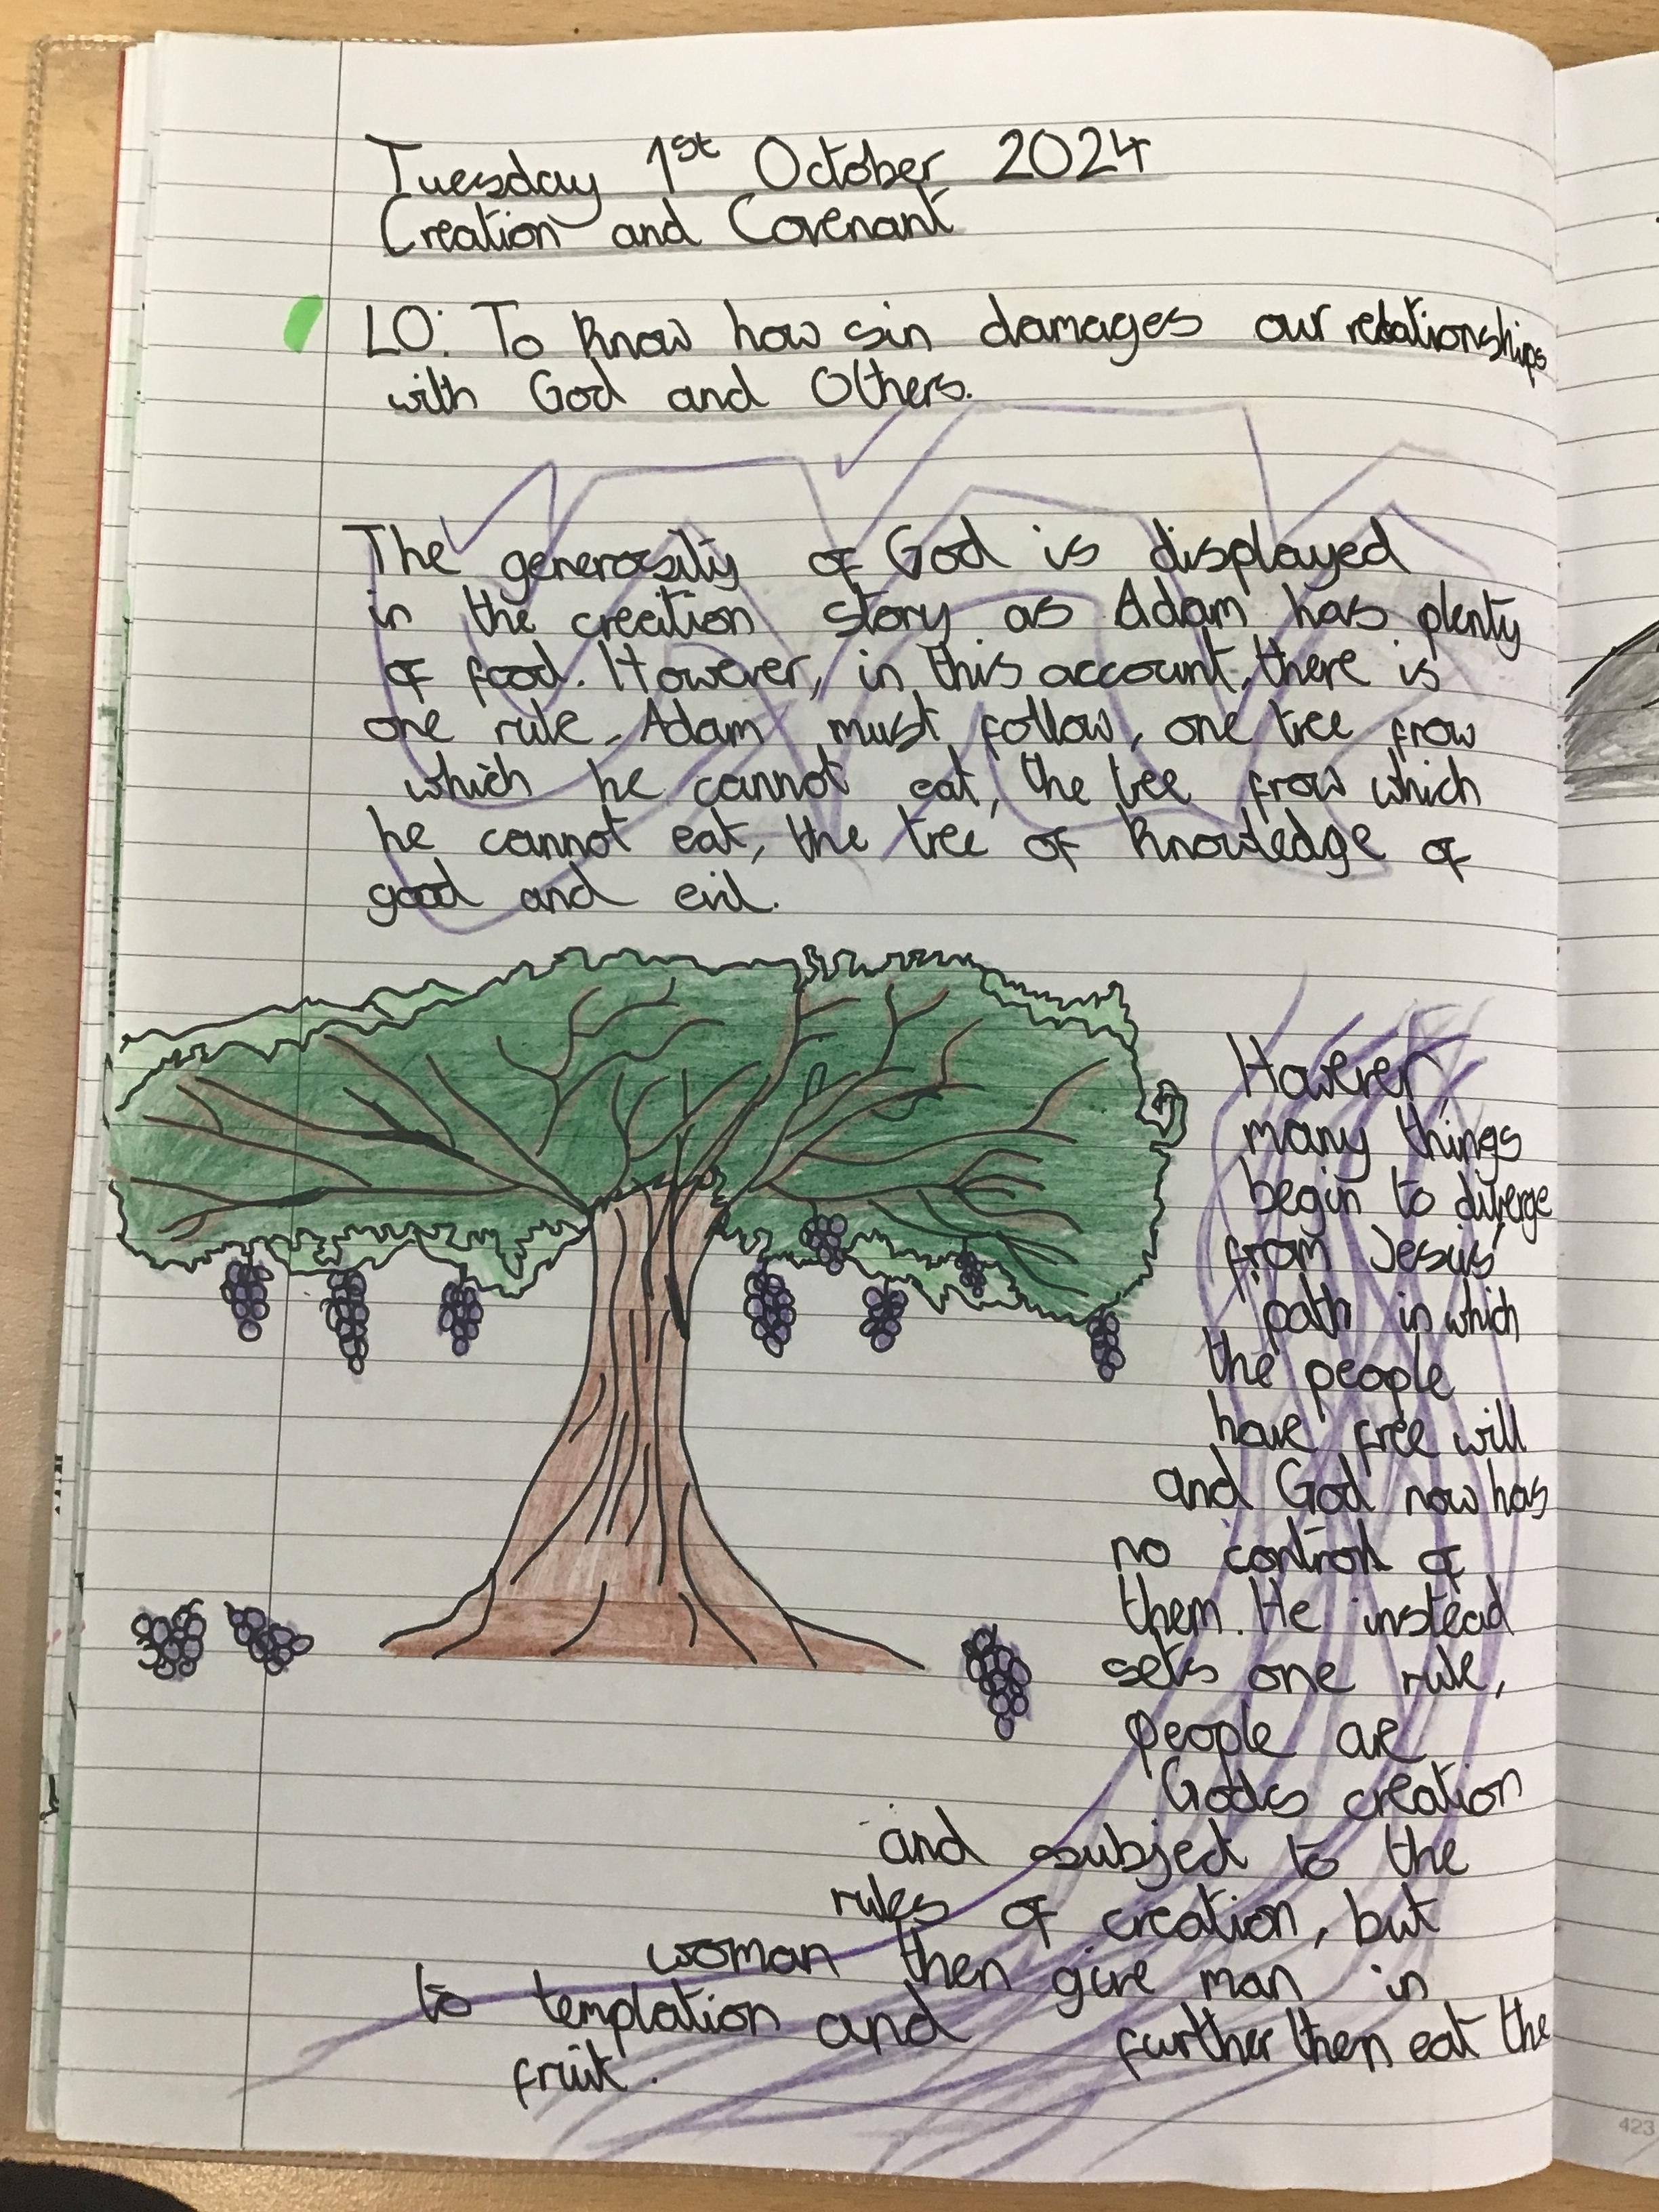 Tuesday 1st October 2024
Creation and Covenant
LO: To know how sin damages our relationships
with God and Others.
The generosity of God is displayed
in the creation story as Adam has plenty
of food. However, in this account, there is
one rule Adam must follow, one tree frow
which he cannot eat, the tree frow which
he cannot eat, the tree of knowledge of
good and evil.
However,
many things
begin to diverge
from Jesus'
path in which
the people
have free will
and God now has
no control of
them. He instead
sets one rule,
people are
Gods creation
and subject to the
rules of creation, but
woman then give man in
to temptation and further then eat the
fruit.
423